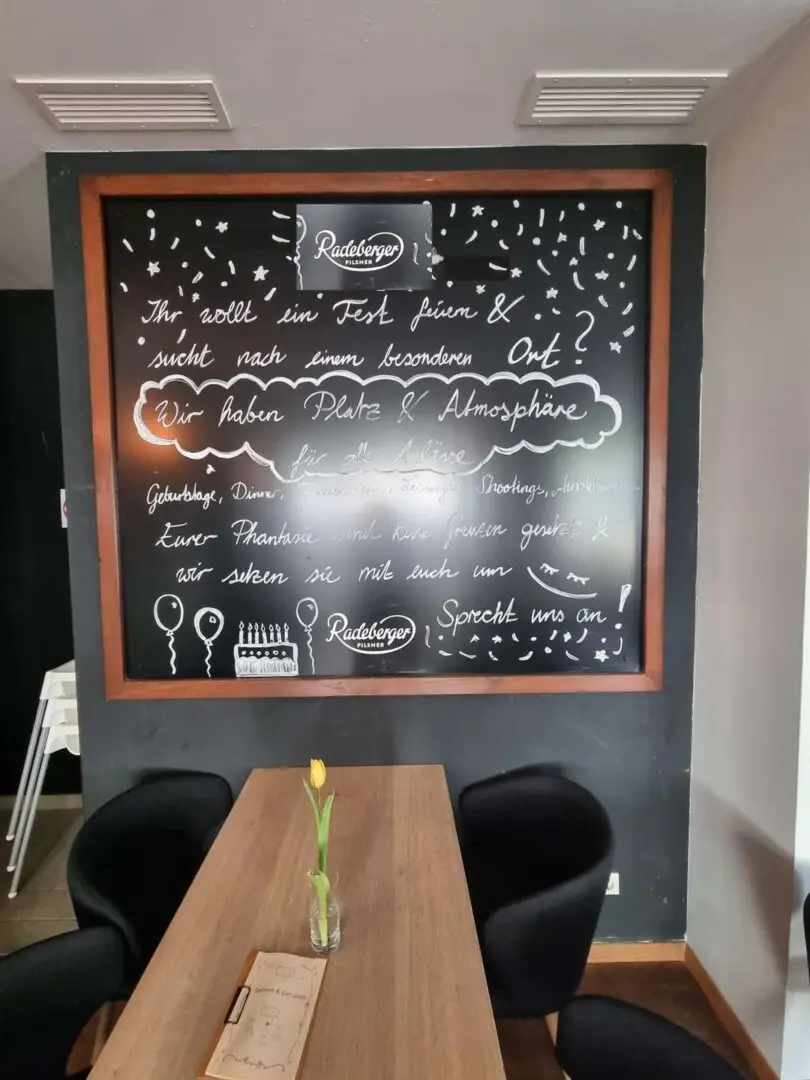 Radeberger
PILSNER
Ihr wollt ein Fest feiern &
sucht nach einem besonderen Ort?
Wir haben Platz & Atmosphäre
für alle Anlässe
Geburtstage, Dinner, Shootings,
Eurer Phantasie sind keine Grenzen gesetzt &
wir setzen sie mit euch um
Sprecht uns an!
Radeberger
PILSNER
Speisen & Getränke